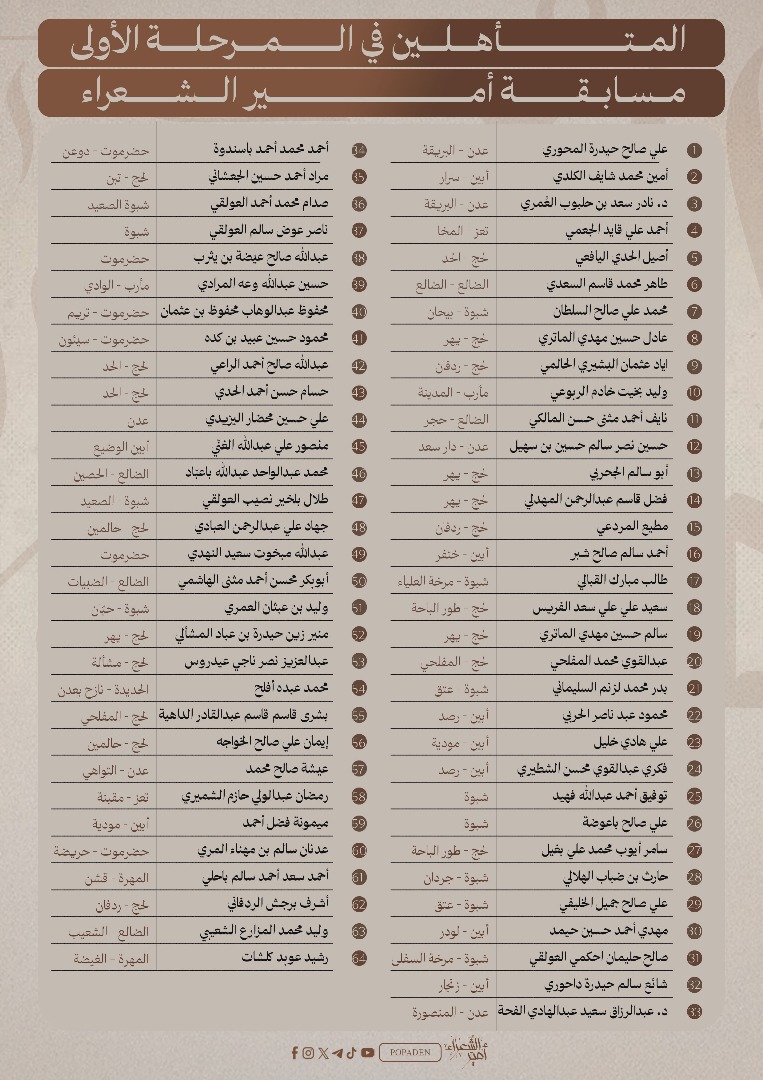 المتأهلين في المرحلة الأولى
مسابقة أمير الشعراء
1 علي صالح حيدرة المحوري عدن - البريقة
2 أمين محمد شايف الكلدي أبين - سرار
3 د. نادر سعد بن حلبوب العمري عدن - البريقة
4 أحمد علي قايد الجعمي تعز - المخا
5 أصيل الحدي اليافعي لحج - الحد
6 طاهر محمد قاسم السعدي الضالع - الضالع
7 محمد علي صالح السلطان شبوة - بيحان
8 عادل حسين مهدي الماتري لحج - يهر
9 اياد عثمان البشيري الحالمي لحج - ردفان
10 وليد بخيت خادم الربوعي مأرب - المدينة
11 نايف أحمد مثنى حسن المالكي الضالع - حجر
12 حسين نصر سالم حسين بن سهيل عدن - دار سعد
13 أبو سالم الجحربي لحج - يهر
14 فضل قاسم عبدالرحمن المهدلي لحج - يهر
15 مطيع المردعي لحج - ردفان
16 أحمد سالم صالح شبر أبين - خنفر
17 طالب مبارك القبالي شبوة - مرخة العلياء
18 سعيد علي علي سعد الفريس لحج - طور الباحة
19 سالم حسين مهدي الماتري لحج - يهر
20 عبدالقوي محمد المفلحي لحج - المفلحي
21 بدر محمد لزنم السليماني شبوة - عتق
22 محمود عبد ناصر الحربي أبين - رصد
23 علي هادي خليل أبين - مودية
24 فكري عبدالقوي محسن الشطيري أبين - رصد
25 توفيق أحمد عبدالله فهيد شبوة
26 علي صالح باعوضة شبوة
27 سامر أيوب محمد علي بغيل لحج - طور الباحة
28 حارث بن ضباب الهلالي شبوة - جردان
29 علي صالح جميل الخليفي شبوة - عتق
30 مهدي أحمد حسين حيمد أبين - لودر
31 صالح حليمان احكمي العولقي شبوة - مرخة السفلى
32 شائع سالم حيدرة داحوري أبين - زنجبار
33 د. عبدالرزاق سعيد عبدالهادي الفحة عدن - المنصورة
34 أحمد محمد أحمد باسندوة حضرموت - دوعن
35 مراد أحمد حسين الجعشاني لحج - تبن
36 صدام محمد أحمد العولقي شبوة الصعيد
37 ناصر عوض سالم العولقي شبوة
38 عبدالله صالح عيضة بن يثرب حضرموت
39 حسين عبدالله وعه المرادي مأرب - الوادي
40 محفوظ عبدالوهاب محفوظ بن عثمان حضرموت - تريم
41 محمود حسين عبيد بن كده حضرموت - سيئون
42 عبدالله صالح أحمد الراعي لحج - الحد
43 حسام حسن أحمد الحدي لحج - الحد
44 علي حسين محضار اليزيدي عدن
45 منصور علي عبدالله الغثي أبين الوضيع
46 محمد عبدالواحد عبدالله باعباد الضالع - الحصين
47 طلال بلخير نصيب العولقي شبوة - الصعيد
48 جهاد علي عبدالرحمن العبادي لحج - حالمين
49 عبدالله مبخوت سعيد النهدي حضرموت
50 أبوبكر محسن أحمد مثنى الهاشمي الضالع - الضبيات
51 وليد بن عيثان العمري شبوة - حبّان
52 منير زين حيدرة بن عباد المشألي لحج - يهر
53 عبدالعزيز نصر ناجي عيدروس لحج - مشألة
54 محمد عبده أفلح الحديدة - نازح بعدن
55 بشرى قاسم قاسم عبدالقادر الداهية لحج - المفلحي
56 إيمان علي صالح الخواجه لحج - حالمين
57 عيشة صالح محمد عدن - التواهي
58 رمضان عبدالولي حازم الشميري تعز - مقبنة
59 ميمونة فضل أحمد أبين - مودية
60 عدنان سالم بن مهناء المري حضرموت - حريضة
61 أحمد سعد أحمد سالم باحلي المهرة - قشن
62 أشرف برجش الردفاني لحج - ردفان
63 وليد محمد المزارع الشعيبي الضالع - الشعيب
64 رشيد عوبد كلشات المهرة - الغيضة
POPADEN
أمير الشعراء